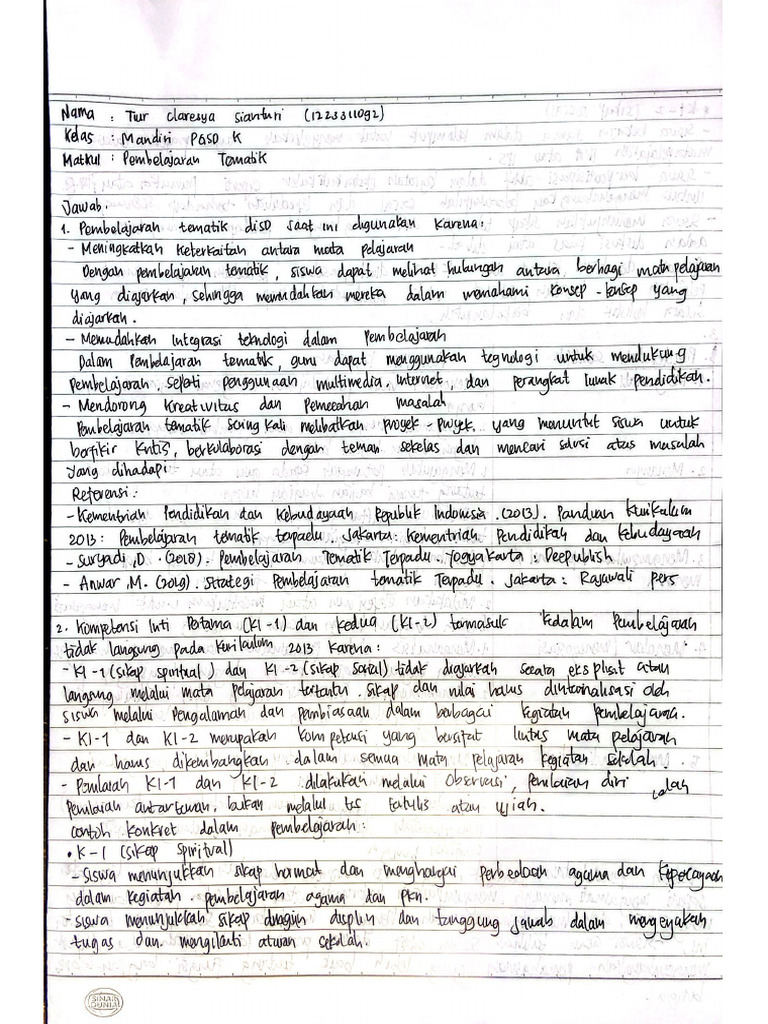 Nama : Tiur claresya sianturi (1223311092)
Kelas : Mandiri PGSD K
Matkul : Pembelajaran Tematik
Jawab.
1. Pembelajaran tematik diSD saat ini digunakan karena:
- Meningkatkan Keterkaitan antara mata pelajaran
Dengan pembelajaran tematik, siswa dapat melihat hubungan antara berbagi mata pelajaran
yang diajarkan, sehingga memudahkan mereka dalam memahami konsep-konsep yang
diajarkan.
- Memudahkan Integrasi teknologi dalam Pembelajaran
Dalam Pembelajaran tematik, guru dapat menggunakan tegnologi untuk mendukung
Pembelajaran, seperti penggunaan multimedia, internet dan perangkat lunak pendidikan.
- Mendorong Kreativitas dan Pemecahan masalah
Pembelajaran tematik sering kali melibatkan proyek-proyek, yang menuntut siswa untuk
berfikir kritis, berkolaborasi dengan teman sekelas dan mencari solusi atas masalah
yang dihadapi
Referensi :
- Kementrian Pendidikan dan Kebudayaan Republik Indonesia .(2013). Panduan Kurikulum
2013: Pembelajaran tematik terpadu. Jakarta: Kementrian Pendidikan dan Kebudayaan
- Suryadi, D. (2018). Pembelajaran Tematik Terpadu. Yogyakarta : Deepublish
- Anwar, M. (2019). Strategi Pembelajaran tematik Terpadu. Jakarta: Rajawali pers
2. Kompetensi Inti Pertama (KI-1) dan Kedua (KI-2) termasuk kedalam Pembelajaran
tidak langsung pada Kurikulum 2013 karena:
- KI-1 (sikap spiritual) dan KI-2 (sikap Sosial) tidak diajarkan secara eksplisit atau
langsung melalui mata pelajaran tertentu. sikap dan nilai harus diinternalisasi oleh
siswa melalui Pengalaman dan pembiasaan dalam berbagai kegiatan pembelajaran.
- KI-1 dan KI-2 merupakan kompetensi yang bersifat lintas mata pelajaran
dan harus dikembangkan dalam semua mata pelajaran kegiatan sekolah.
- Penilaian KI-1 dan KI-2 dilakukan melalui Observasi, penilaian diri, dan
Penilaian antarteman, bukan melalui tes tertulis atau ujian.
contoh konkret dalam pembelajaran:
• K-1 (sikap spiritual)
- Siswa menunjukkan sikap hormat dan menghargai perbedaan agama dan kepercayaan
dalam kegiatan pembelajaran agama dan pkn.
- siswa menunjukkan sikap dengan displin dan tanggung jawab dalam mengerjakan
tugas dan mengikuti aturan sekolah.
SINAR
DUNIA